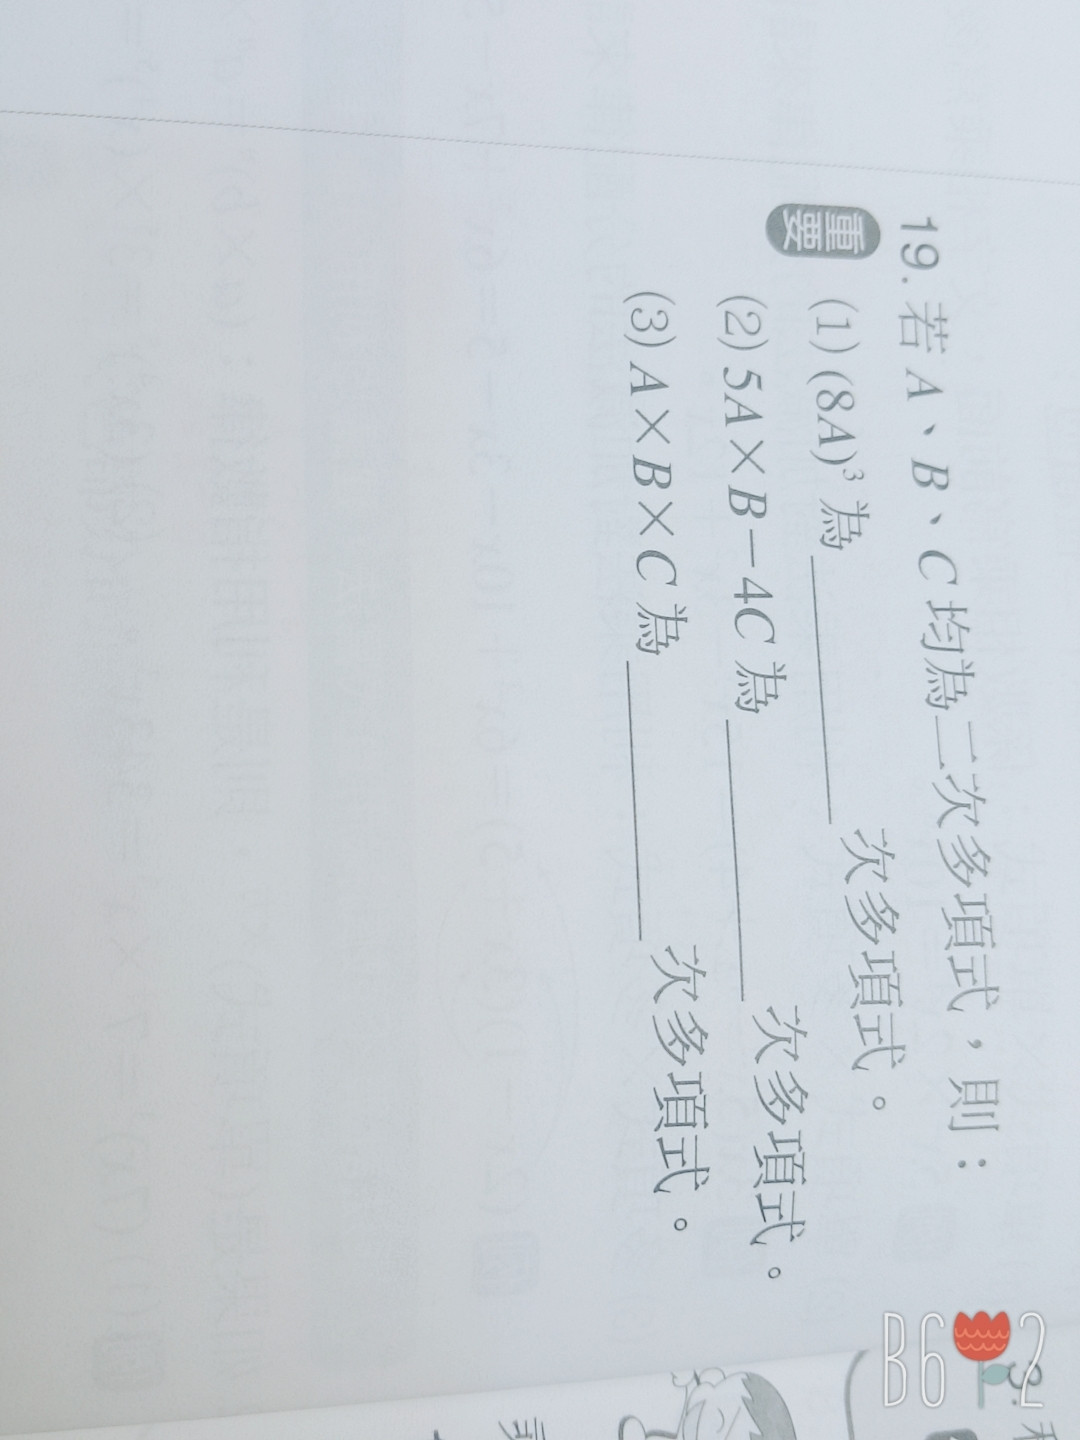 19. 若 A、B、C 均為二次多項式，則：
重要
(1) (8A)³ 為＿＿＿＿＿次多項式。
(2) 5A×B－4C 為＿＿＿＿＿次多項式。
(3) A×B×C 為＿＿＿＿＿次多項式。
B612